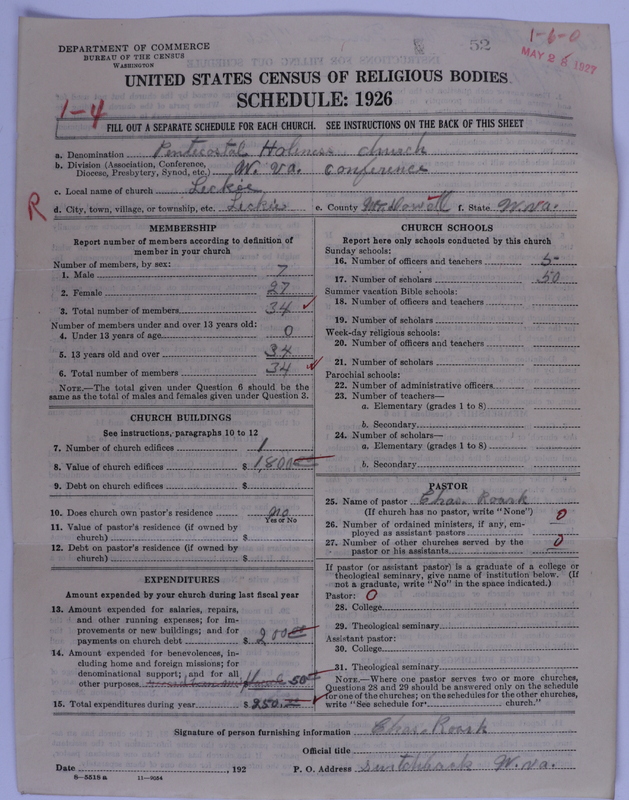 DEPARTMENT OF COMMERCE
BUREAU OF THE CENSUS
WASHINGTON
52
1-6-0
MAY 2 1927
UNITED STATES CENSUS OF RELIGIOUS BODIES
SCHEDULE: 1926
1-4
FILL OUT A SEPARATE SCHEDULE FOR EACH CHURCH. SEE INSTRUCTIONS ON THE BACK OF THIS SHEET
a. Denomination Pentecostal Holiness church
b. Division (Association, Conference, Diocese, Presbytery, Synod, etc.) W. Va. conference
c. Local name of church Leckie
R
d. City, town, village, or township, etc. Leckie e. County McDowell f. State W.Va.
MEMBERSHIP
Report number of members according to definition of
member in your church
Number of members, by sex:
1. Male 7
2. Female 27
3. Total number of members 34
Number of members under and over 13 years old:
4. Under 13 years of age 0
5. 13 years old and over 34
6. Total number of members 34
NOTE.—The total given under Question 6 should be
same as the total of males and females given under Question 3.
CHURCH BUILDINGS
See instructions, paragraphs 10 to 12
7. Number of church edifices 1
8. Value of church edifices $ 1,800
9. Debt on church edifices $
10. Does church own pastor's residence no
Yes or No
11. Value of pastor's residence (if owned by
church) $
12. Debt on pastor's residence (if owned by
church) $
EXPENDITURES
Amount expended by your church during last fiscal year
13. Amount expended for salaries, repairs,
and other running expenses; for im-
provements or new buildings; and for
payments on church debt $ 200
14. Amount expended for benevolences, in-
cluding home and foreign missions; for
denominational support; and for all
other purposes 50
15. Total expenditures during year $ 250
CHURCH SCHOOLS
Report here only schools conducted by this church
Sunday schools:
16. Number of officers and teachers 5
17. Number of scholars 50
Summer vacation Bible schools:
18. Number of officers and teachers
19. Number of scholars
Week-day religious schools:
20. Number of officers and teachers
21. Number of scholars
Parochial schools:
22. Number of administrative officers
23. Number of teachers—
a. Elementary (grades 1 to 8)
b. Secondary
24. Number of scholars—
a. Elementary (grades 1 to 8)
b. Secondary
PASTOR
25. Name of pastor Chas. Roark
(If church has no pastor, write "None")
26. Number of ordained ministers, if any, em-
ployed as assistant pastors 0
27. Number of other churches served by the
pastor or his assistants 0
If pastor (or assistant pastor) is a graduate of a college or
theological seminary, give name of institution below. (If
not a graduate, write "No" in the space indicated.)
Pastor: 0
28. College
29. Theological seminary
Assistant pastor:
30. College
31. Theological seminary
NOTE.—Where one pastor serves two or more churches,
Questions 28 and 29 should be answered only on the schedule
for one of the churches; on the schedules for the other churches,
write "See schedule for church."
Signature of person furnishing information Chas. Roark
Official title
Date , 192 P. O. Address Switchback W.Va.
8-5518 a 11-9054